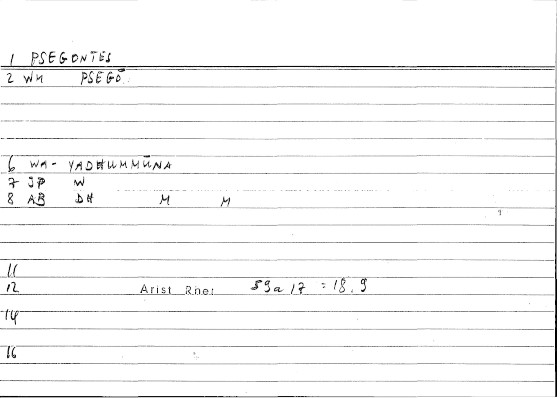 1 PSEGONTES
2 WH PSEGŌ
6 WA- YADHUMMŪNA
7 JP W
8 AB DH M M
11
12 Arist Rhet 59a17 = 18.9
14
16